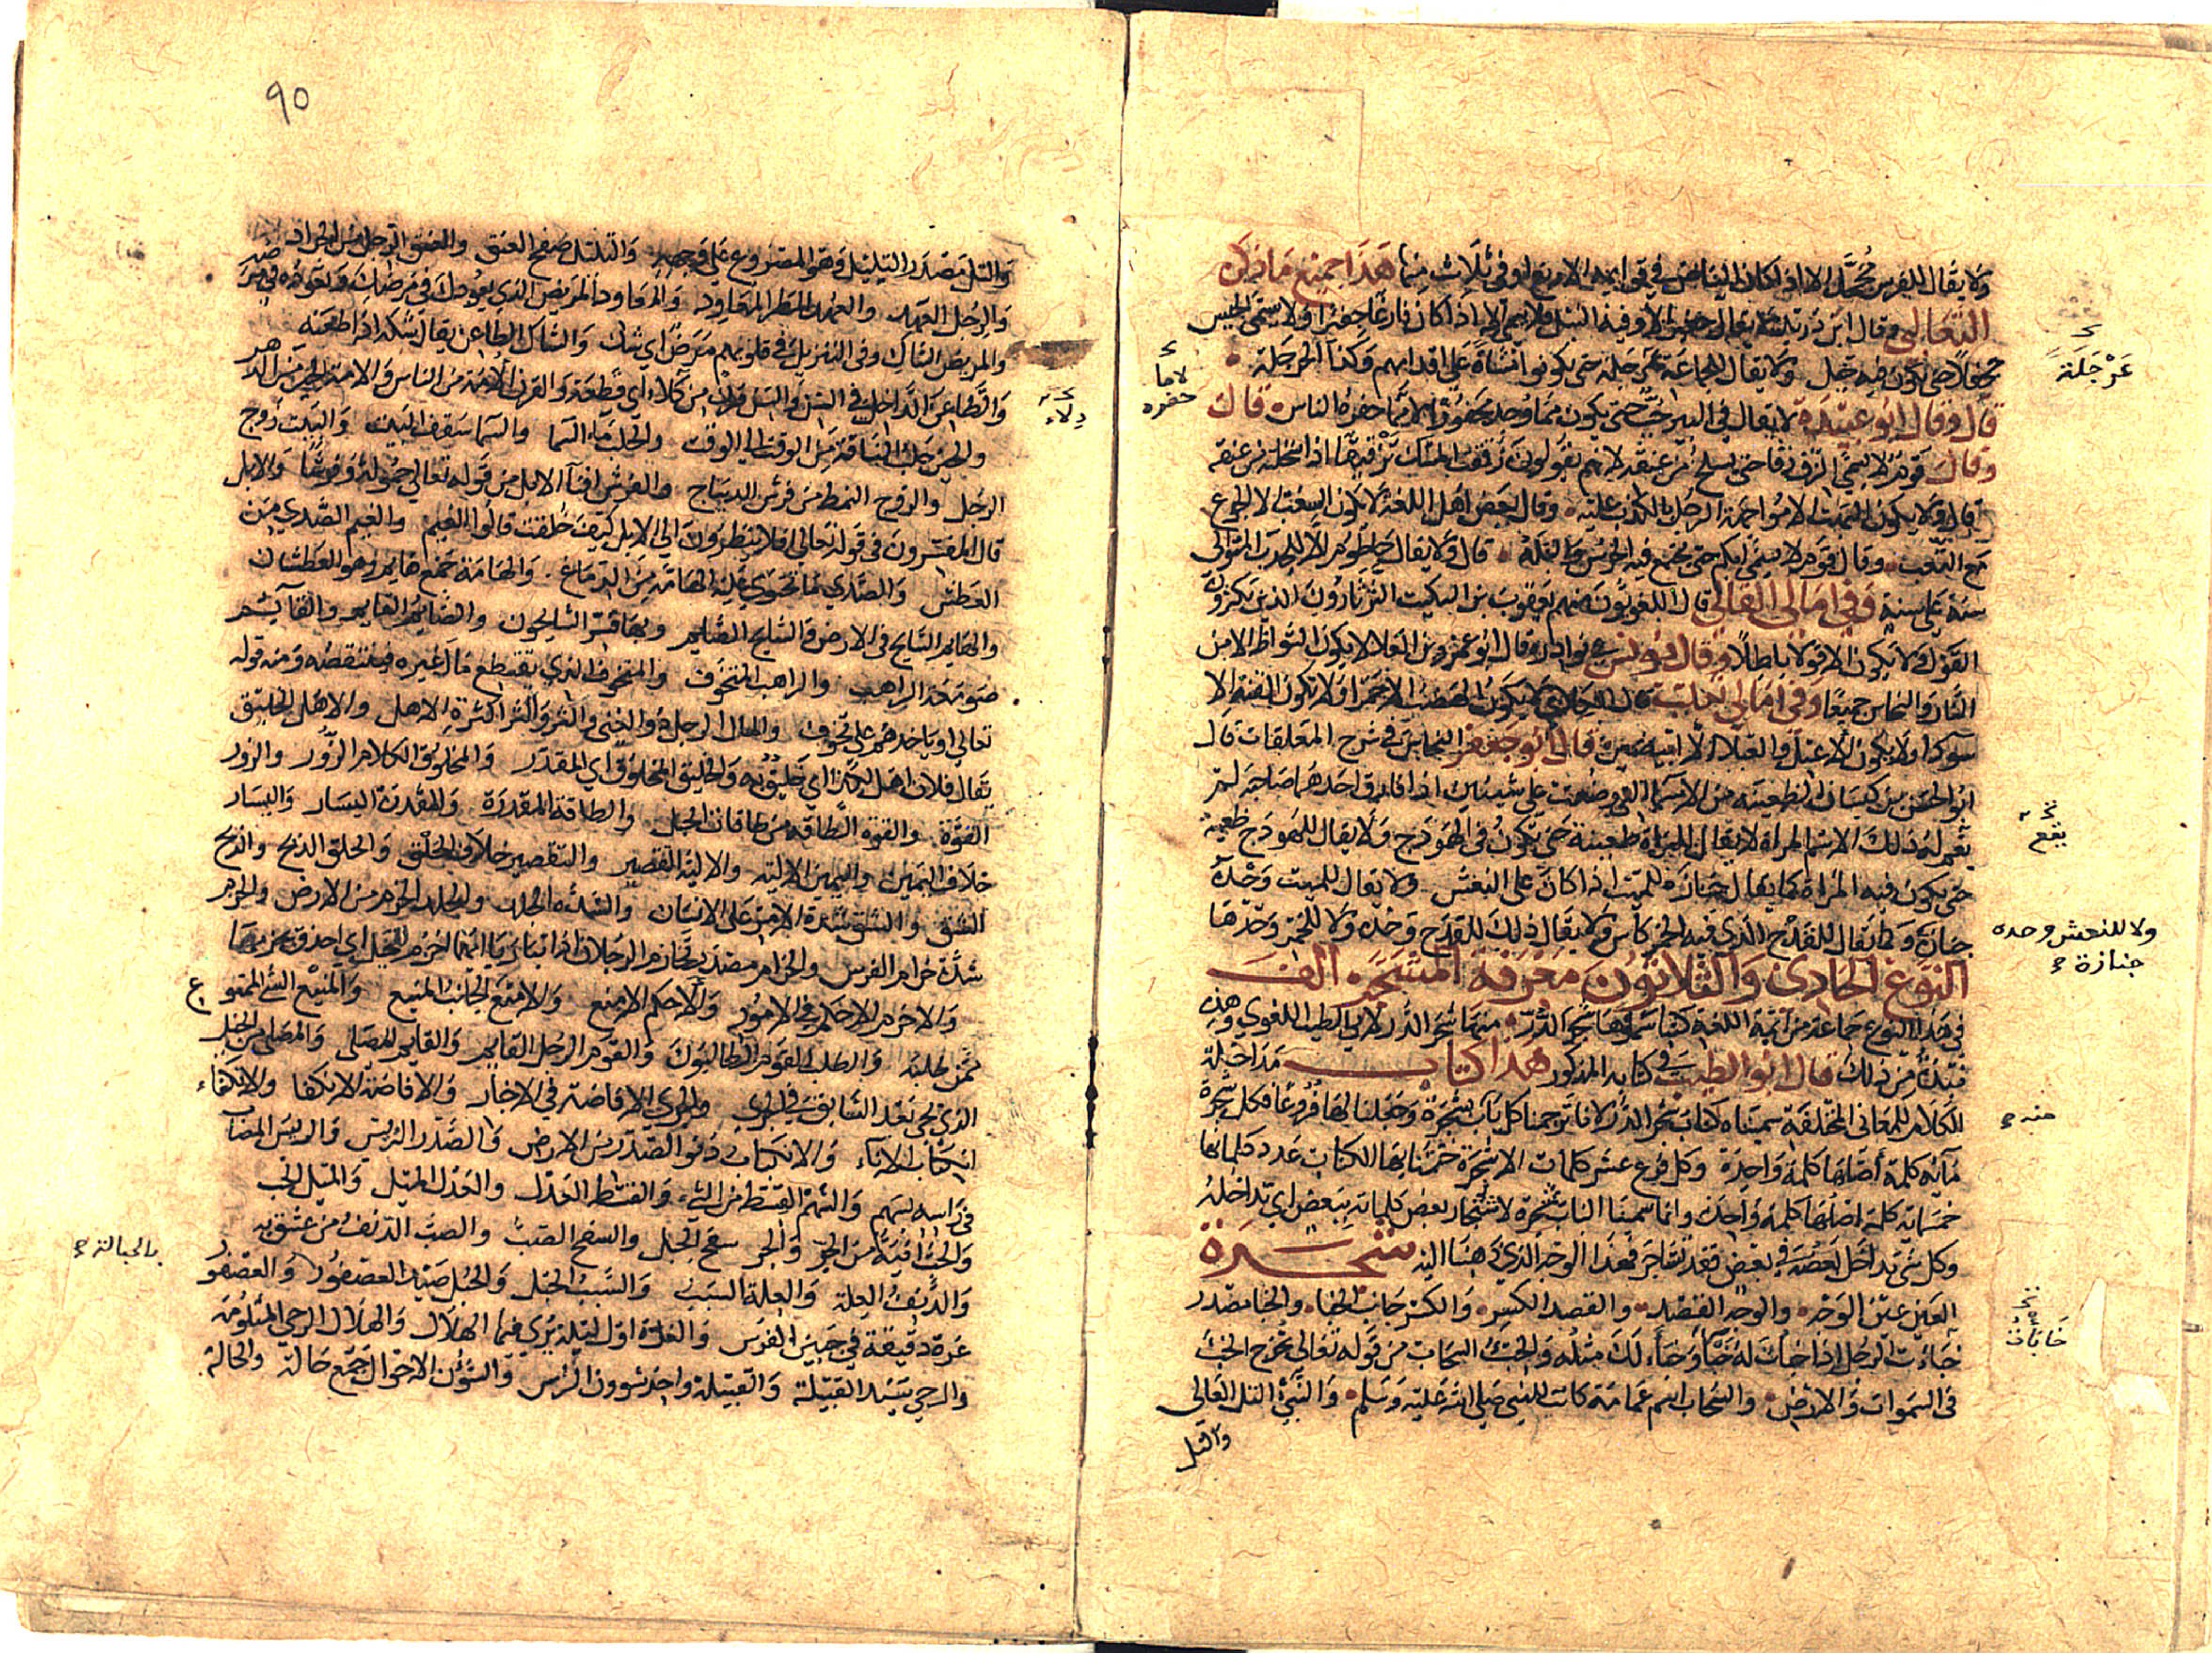 ولا يقال للفرس محجل الا اذا كان البياض في قوايمه الاربع او في ثلاث منها هذا جميع ما ذكره
الثعالبي وقال ابن دريد لا يقال جفير الا وفيه النبل فلا يسمى الا اذا كان فارغا جفيرا ولا يسمى الجيش
جحفلا حتى تكون فيه خيل ولا يقال للجماعة عرجلة حتى يكونوا مشاة على اقدامهم وكذا الحرجلة
قال وقال ابو عبيدة لا يقال في البير جب حتى يكون مما وجد محفورا لا مما حفره الناس قال
وقال قوم لا يسمى الزق زقا حتى يسلخ من عنقه لانهم يقولون زققت المسك تزقيقا اذا سلخته من عنقه
قال ولا يكون البهت الا مواجهة الرجل بالكذب عليه وقال بعض اهل اللغة لا يكون السغب الا الجوع
مع التعب وقال قوم لا يسمى ابكم حتى يجتمع فيه الخرس والبله قال ولا يقال حاطوم الا للجدب المتوالي
سنة على سنة وفي امالي القالي قال اللغويون منهم يعقوب بن السكيت الثرثارون الذين يكثرون
القول ولا يكون الا قولا باطلا وقال يونس في نوادره قال ابو عمرو بن العلا لا يكون الشواظ الا من
النار والنحاس جميعا وفي امالي ثعلب
سودا ولا يكون قال ابو جعفر النحاس في شرح المعلقات قال
ابو الحسن بن كيسان الظعينة من الاسما التي وضعت على شيئين اذا فارق احدهما صاحبه لم
يقع له ذلك الاسم لا يقال للمراة ظعينة حتى تكون في الهودج ولا يقال للهودج ظعينة
حتى يكون فيه المراة كما يقال جنازة للميت اذا كان على النعش ولا يقال للميت وحده
جنازة وكما يقال للقدح الذي فيه الخمر كأس ولا يقال ذلك للقدح وحده ولا للخمر وحدها
النوع الحادي والثلاثون معرفة المشجر الف
في هذا النوع جماعة من ائمة اللغة كتبا سموها شجر الدر منها شجر الدر لابي الطيب اللغوي وهذه
نبذة من ذلك قال ابو الطيب في كتابه المذكور هذا كتاب مداخلة
الكلام للمعاني المختلفة سميناه كتاب شجر الدر لانا ترجمنا كل باب بشجرة وجعلنا لها فروعا فكل شجرة
مائة كلمة اصلها كلمة واحدة وكل فرع عشر كلمات الا شجرة ختمنا بها الكتاب عدد كلماتها
خمسمائة كلمة اصلها كلمة واحدة وانما سمينا الباب شجرة لاشتجار بعض كلماته ببعض اي تداخله
وكل شي تداخل بعضه في بعض فقد تشاجر فهذا الوجه الذي ذهبنا اليه شجرة
العين عين الوجه والوجه القصد والقصد الكسر والكسر جانب الخبا والخبا مصدر
خابأت الرجل اذا خبأت له خبأ وخبأ لك مثله والخبء السحاب من قوله تعالى يخرج الخبء
في السموات والارض والسحاب اسم عمامة كانت للنبي صلى الله عليه وسلم والنبي التل العالي
والتل
عرجلة
لا مما
حفره
يقع
ولا للنعش وحده
جنازة
منه
خابأت
٩٠
والتل مصدر التليل وهو المصروع على وجهه والتليل صفح العنق والعنق الرجل من الجراد
والرجل العهد والعهد المطر المعاود والمعاود المريض الذي يعودك في مرضك وتعوده في مرضه
والمريض الشاك وفي التنزيل في قلوبهم مرض اي شك والشاك الطاعن يقال شكه اذا طعنه
والطاعن الداخل في السن والسن قرن من كلاء اي قطعة والقرن الامة من الناس والامة الحين من الدهر
والحين حلب الناقة من الوقت الى الوقت والحلب ماء السما والسما سقف البيت والبيت زوج
الرجل والزوج النمط من فرش الديباج والفرش افتا الابل من قوله تعالى حمولة وفرشا والابل
قال المفسرون في قوله تعالى افلا ينظرون الى الابل كيف خلقت قالوا الغيم والغيم الصدي من
العطش والصدي ما تحتوي عليه الهامة من الدماغ والهامة جمع هايم وهو العطشان
والهايم السايح في الارض والسايح الصايم وبها فسر السايحون والصايم القايم والقايم
صومعة الراهب والراهب المتخوف والمتخوف الذي يقتطع مال غيره فينتقصه ومنه قوله
تعالى او ياخذهم على تخوف والمال الرجل ذو الغنى والثر والثرا كثرة الاهل والاهل الخليق
يقال فلان اهل لكذا اي خليق به والخليق المخلوق اي المقدر والمخلوق الكلام الزور والزور
القوة والقوة الطاقة من طاقات الحبل والطاقة المقدرة والمقدرة اليسار واليسار
خلاف اليمين واليمين الالية والالية التقصير والتقصير خلاف الحلق والحلق الذبح والذبح
الشق والشق شدة الامر على الانسان والشدة الجلد والجلد الحزم من الارض والحزم
شدة حزام الفرس والحزام مصدر تحازم الرجلان اذا تباريا ايهما احزم للخيل اي احذق بحزمها
والاحزم الاحكم في الامور والاحكم الامنع والامنع الجانب المنيع والمنيع الشي الممنوع
ممن طلبه والطلب القوم الطالبون والقوم الرجل القايم والقايم المصلي والمصلي من الخيل
الذي يجي بعد السابق في الجري والجري الافاضة في الاخبار والافاضة الانكفا والانكفاء
انكباب الاناء والانكباب دنو الصدر من الارض والصدر الرئيس والرئيس المصاب
في راسه بسهم والسهم القسط من الشيء والقسط العدل والعدل الميل والميل الحب
والحب انية من الجر والجر سفح الجبل والسفح الصب والصب الدنف من عشق به
والدنف العلة والعلة السبب والسبب الحبل والحبل صيد العصفور والعصفور
غرة دقيقة في جبين الفرس والغرة اول ليلة يرى فيها الهلال والهلال الرحى المثلومة
والرحى سيد القبيلة والقبيلة واحد شوون الراس والشؤن الاحوال جمع حالة والحالة
كلاء
بالحبالة